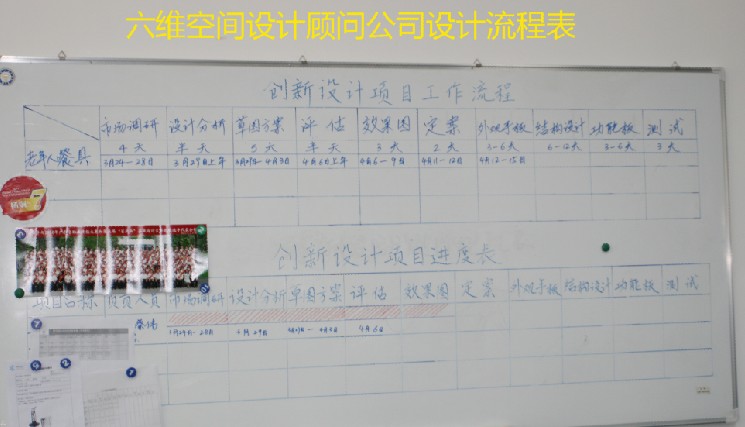 六维空间设计顾问公司设计流程表
创新设计项目工作流程
市场调研 设计分析 草图方案 评估 效果图 定案 外观手板 结构设计 功能板 测试
4天 半天 5天 半天 3天 2天 3-6天 6-12天 3-6天 3天
老年人餐具 3月24-28日 3月29日上午 3月29日-4月3日 4月6日上午 4月6-9日 4月11-12日 4月12-15日
创新设计项目进度表
项目名称 负责人员 市场调研 设计分析 草图方案 评估 效果图 定案 外观手板 结构设计 功能板 测试
3月24日-28日 3月29日 4月6日